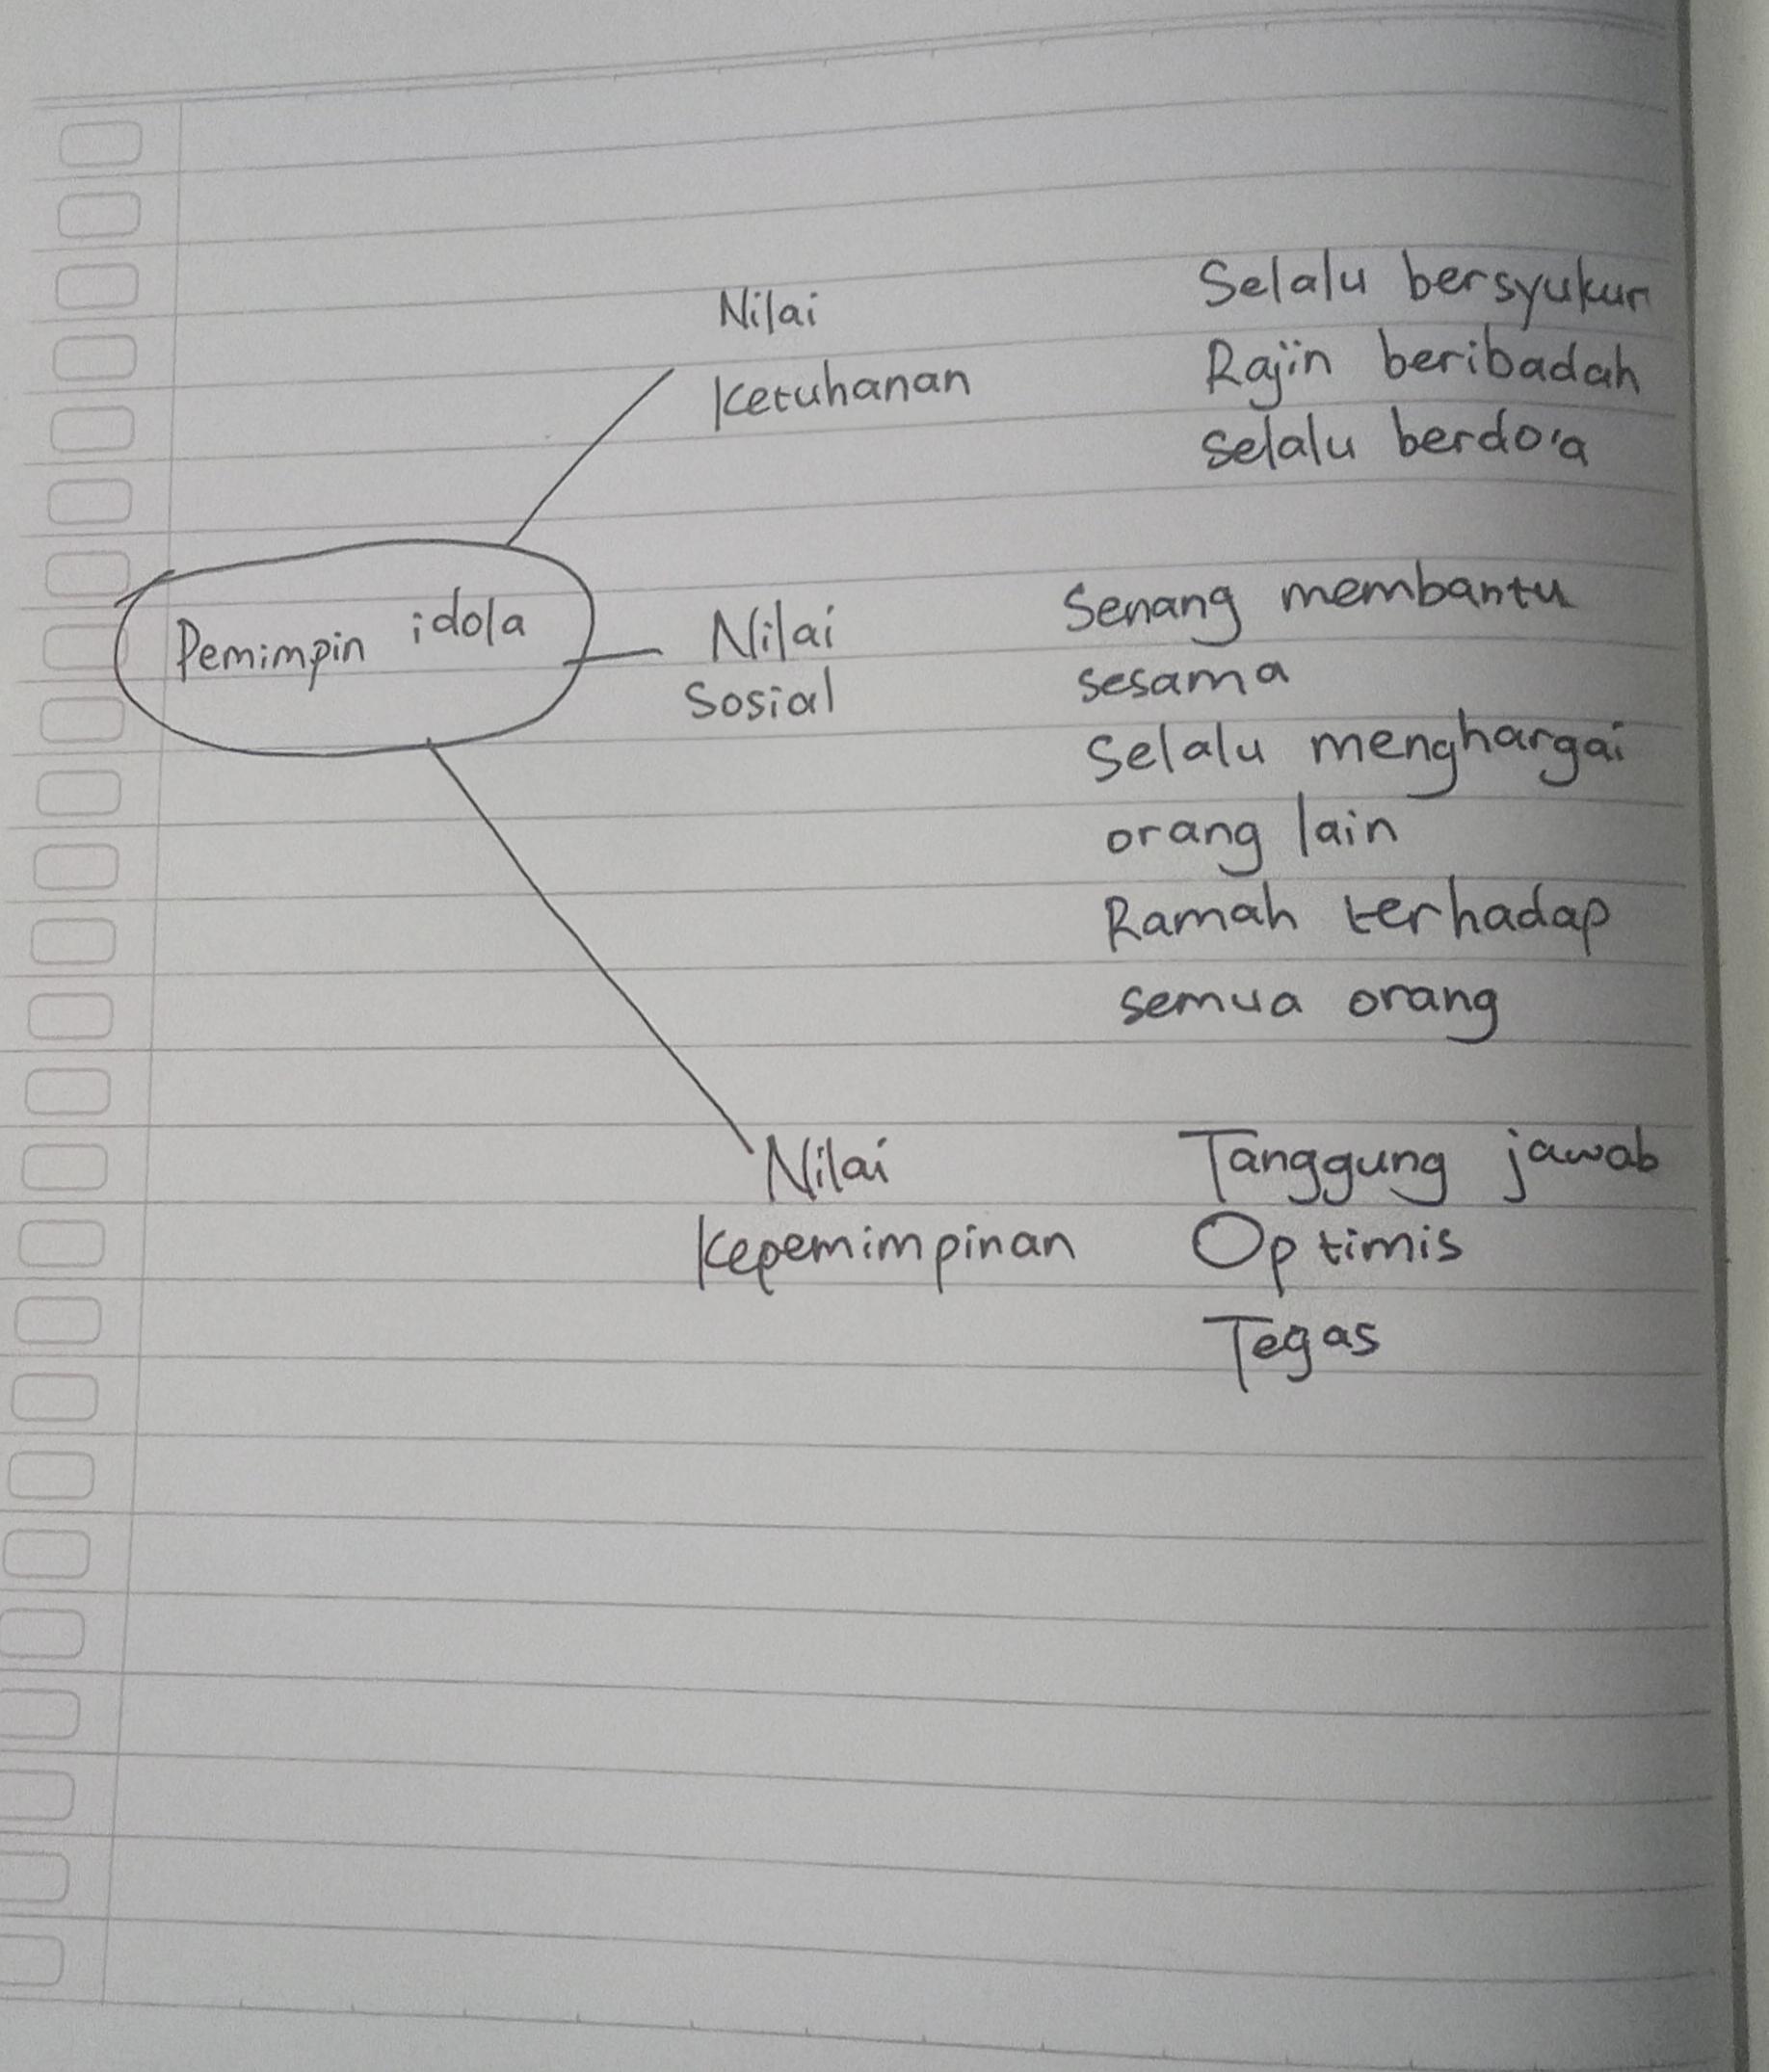 Nilai
Ketuhanan
Selalu bersyukur
Rajin beribadah
Selalu berdo'a
Pemimpin idola
Nilai
Sosial
Senang membantu
sesama
Selalu menghargai
orang lain
Ramah terhadap
semua orang
Nilai
Kepemimpinan
Tanggung jawab
Optimis
Tegas